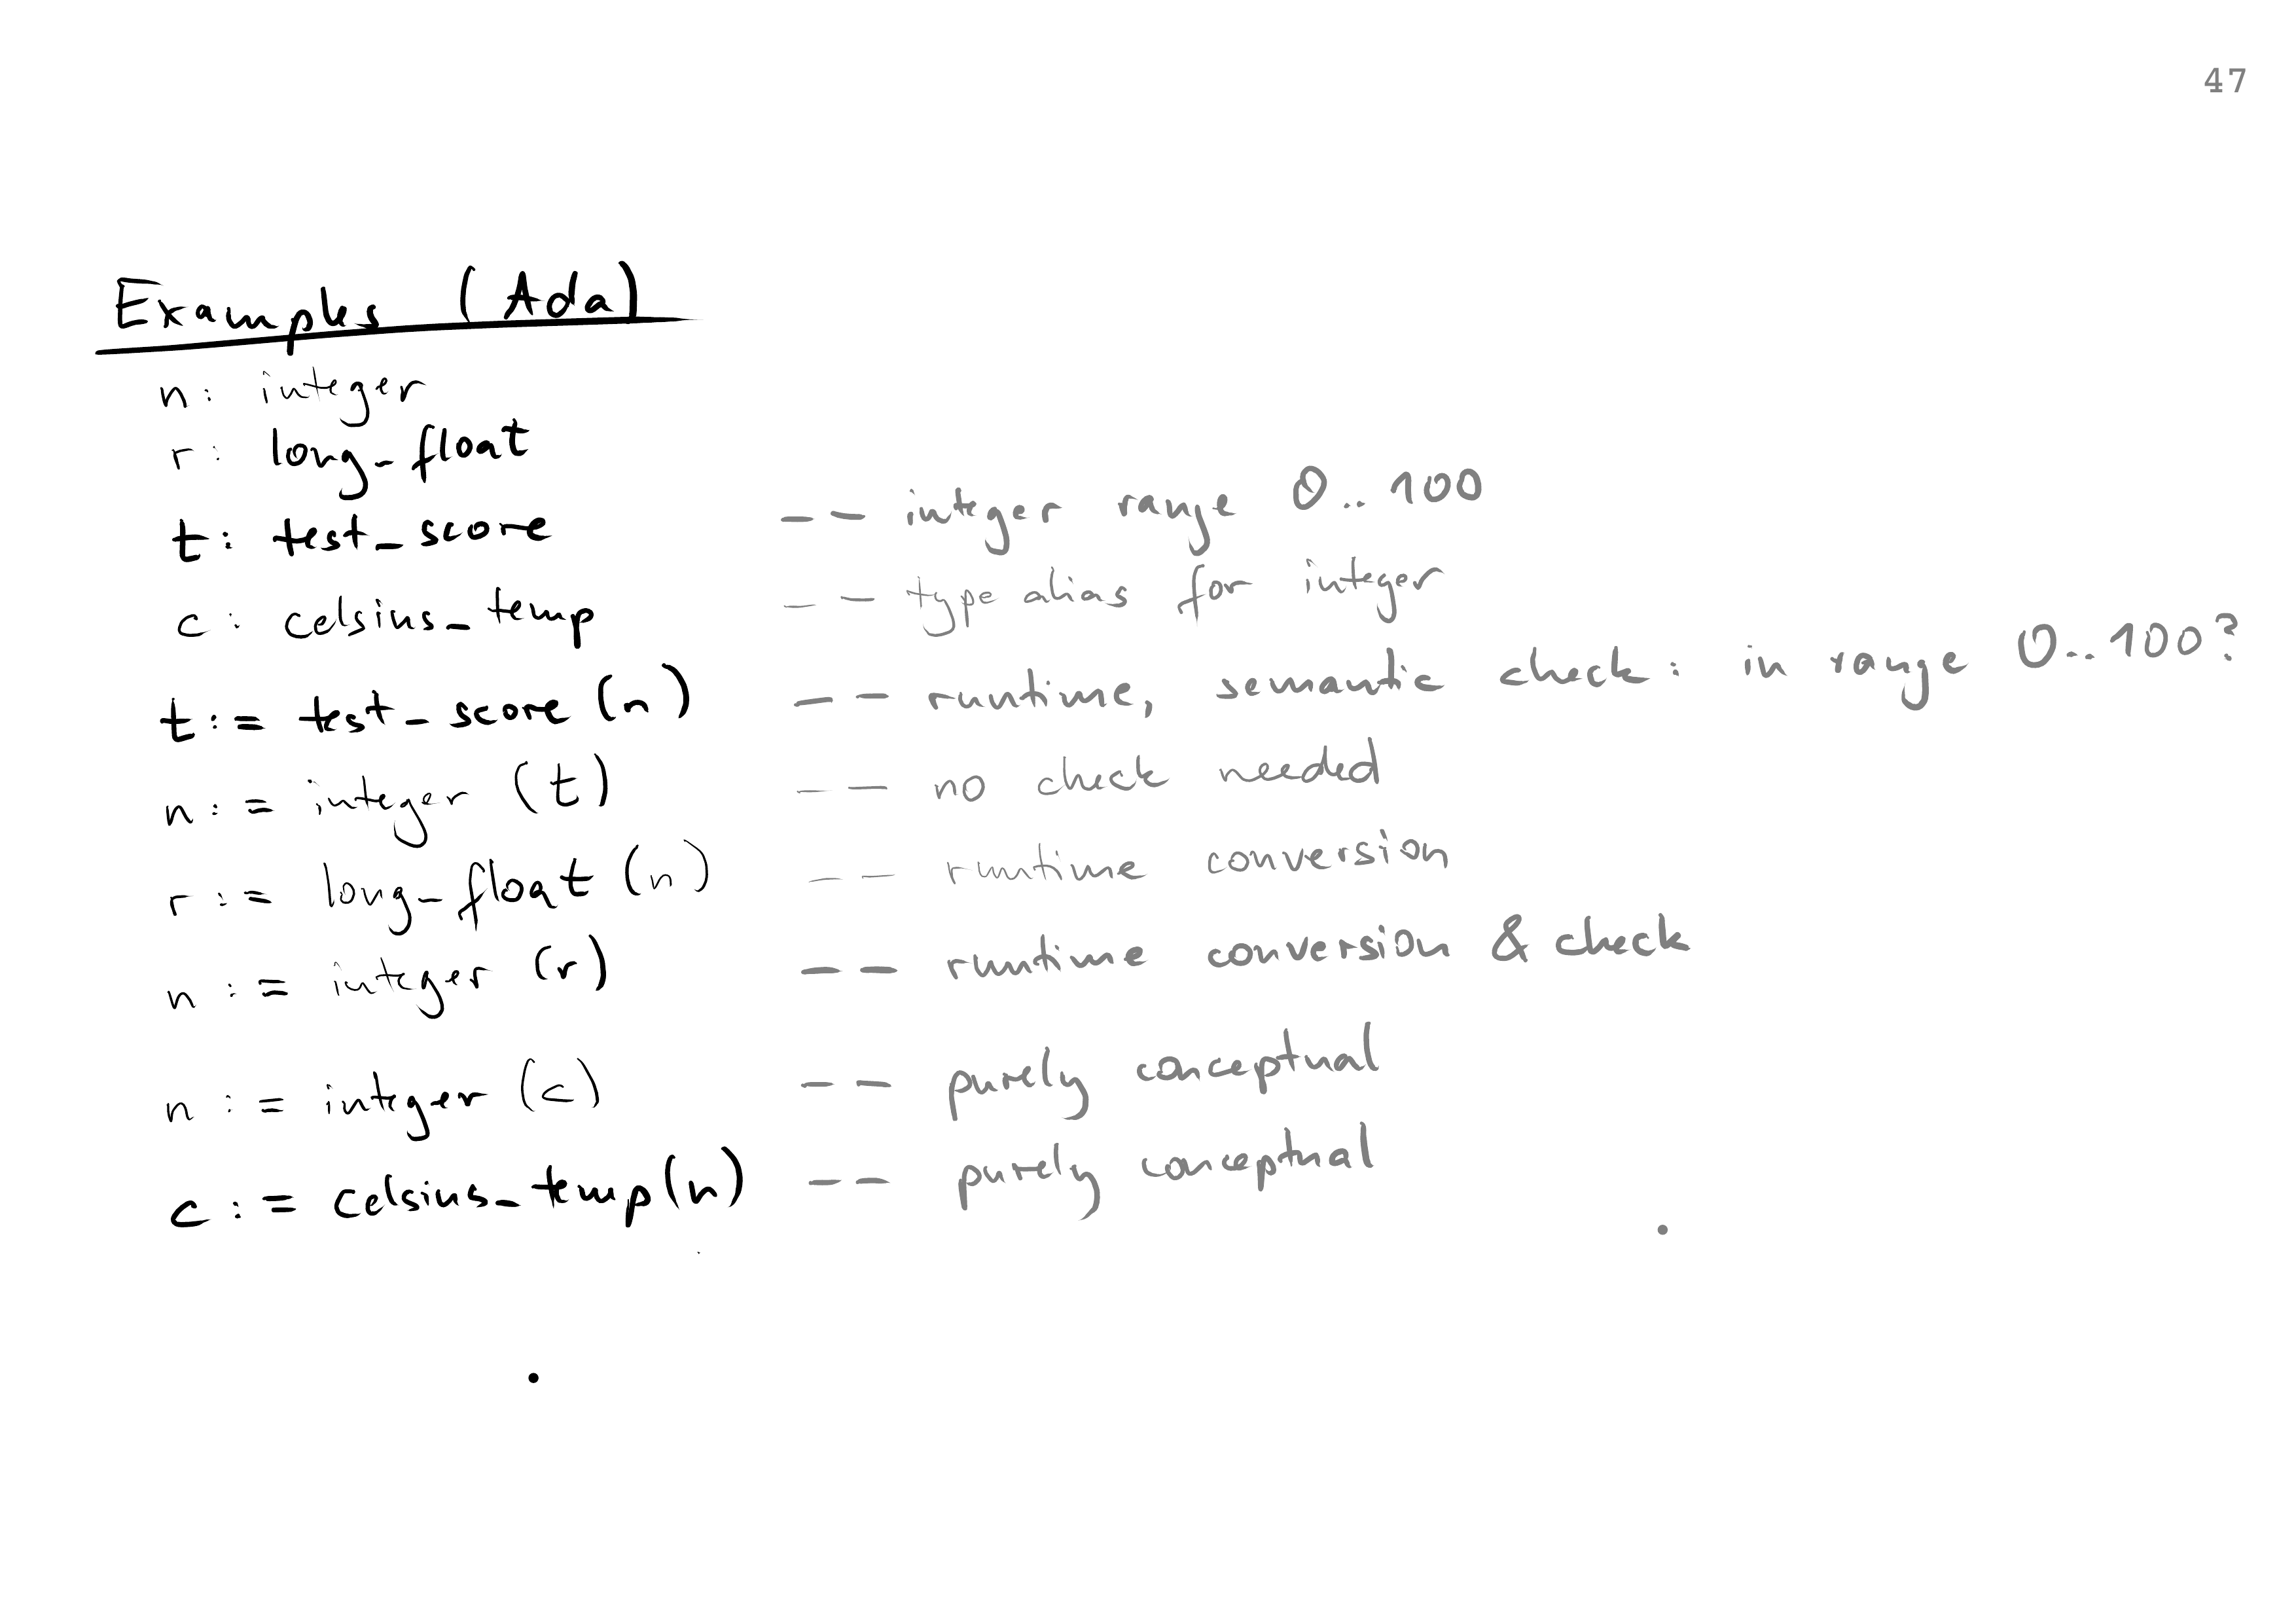 47
Examples (Ada)
n: integer
r: long_float
t: test_score -- integer range 0..100
c: celsius_temp -- type alias for integer
t:= test_score (n) -- runtime, semantic check: in range 0..100?
n:= integer (t) -- no check needed
r:= long_float (n) -- runtime conversion
n:= integer (r) -- runtime conversion & check
n:= integer (c) -- purely conceptual
c:= celsius_temp(n) -- purely conceptual